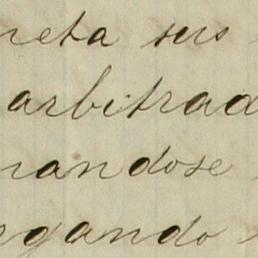 neta sus
arbitrad
nandose
gando